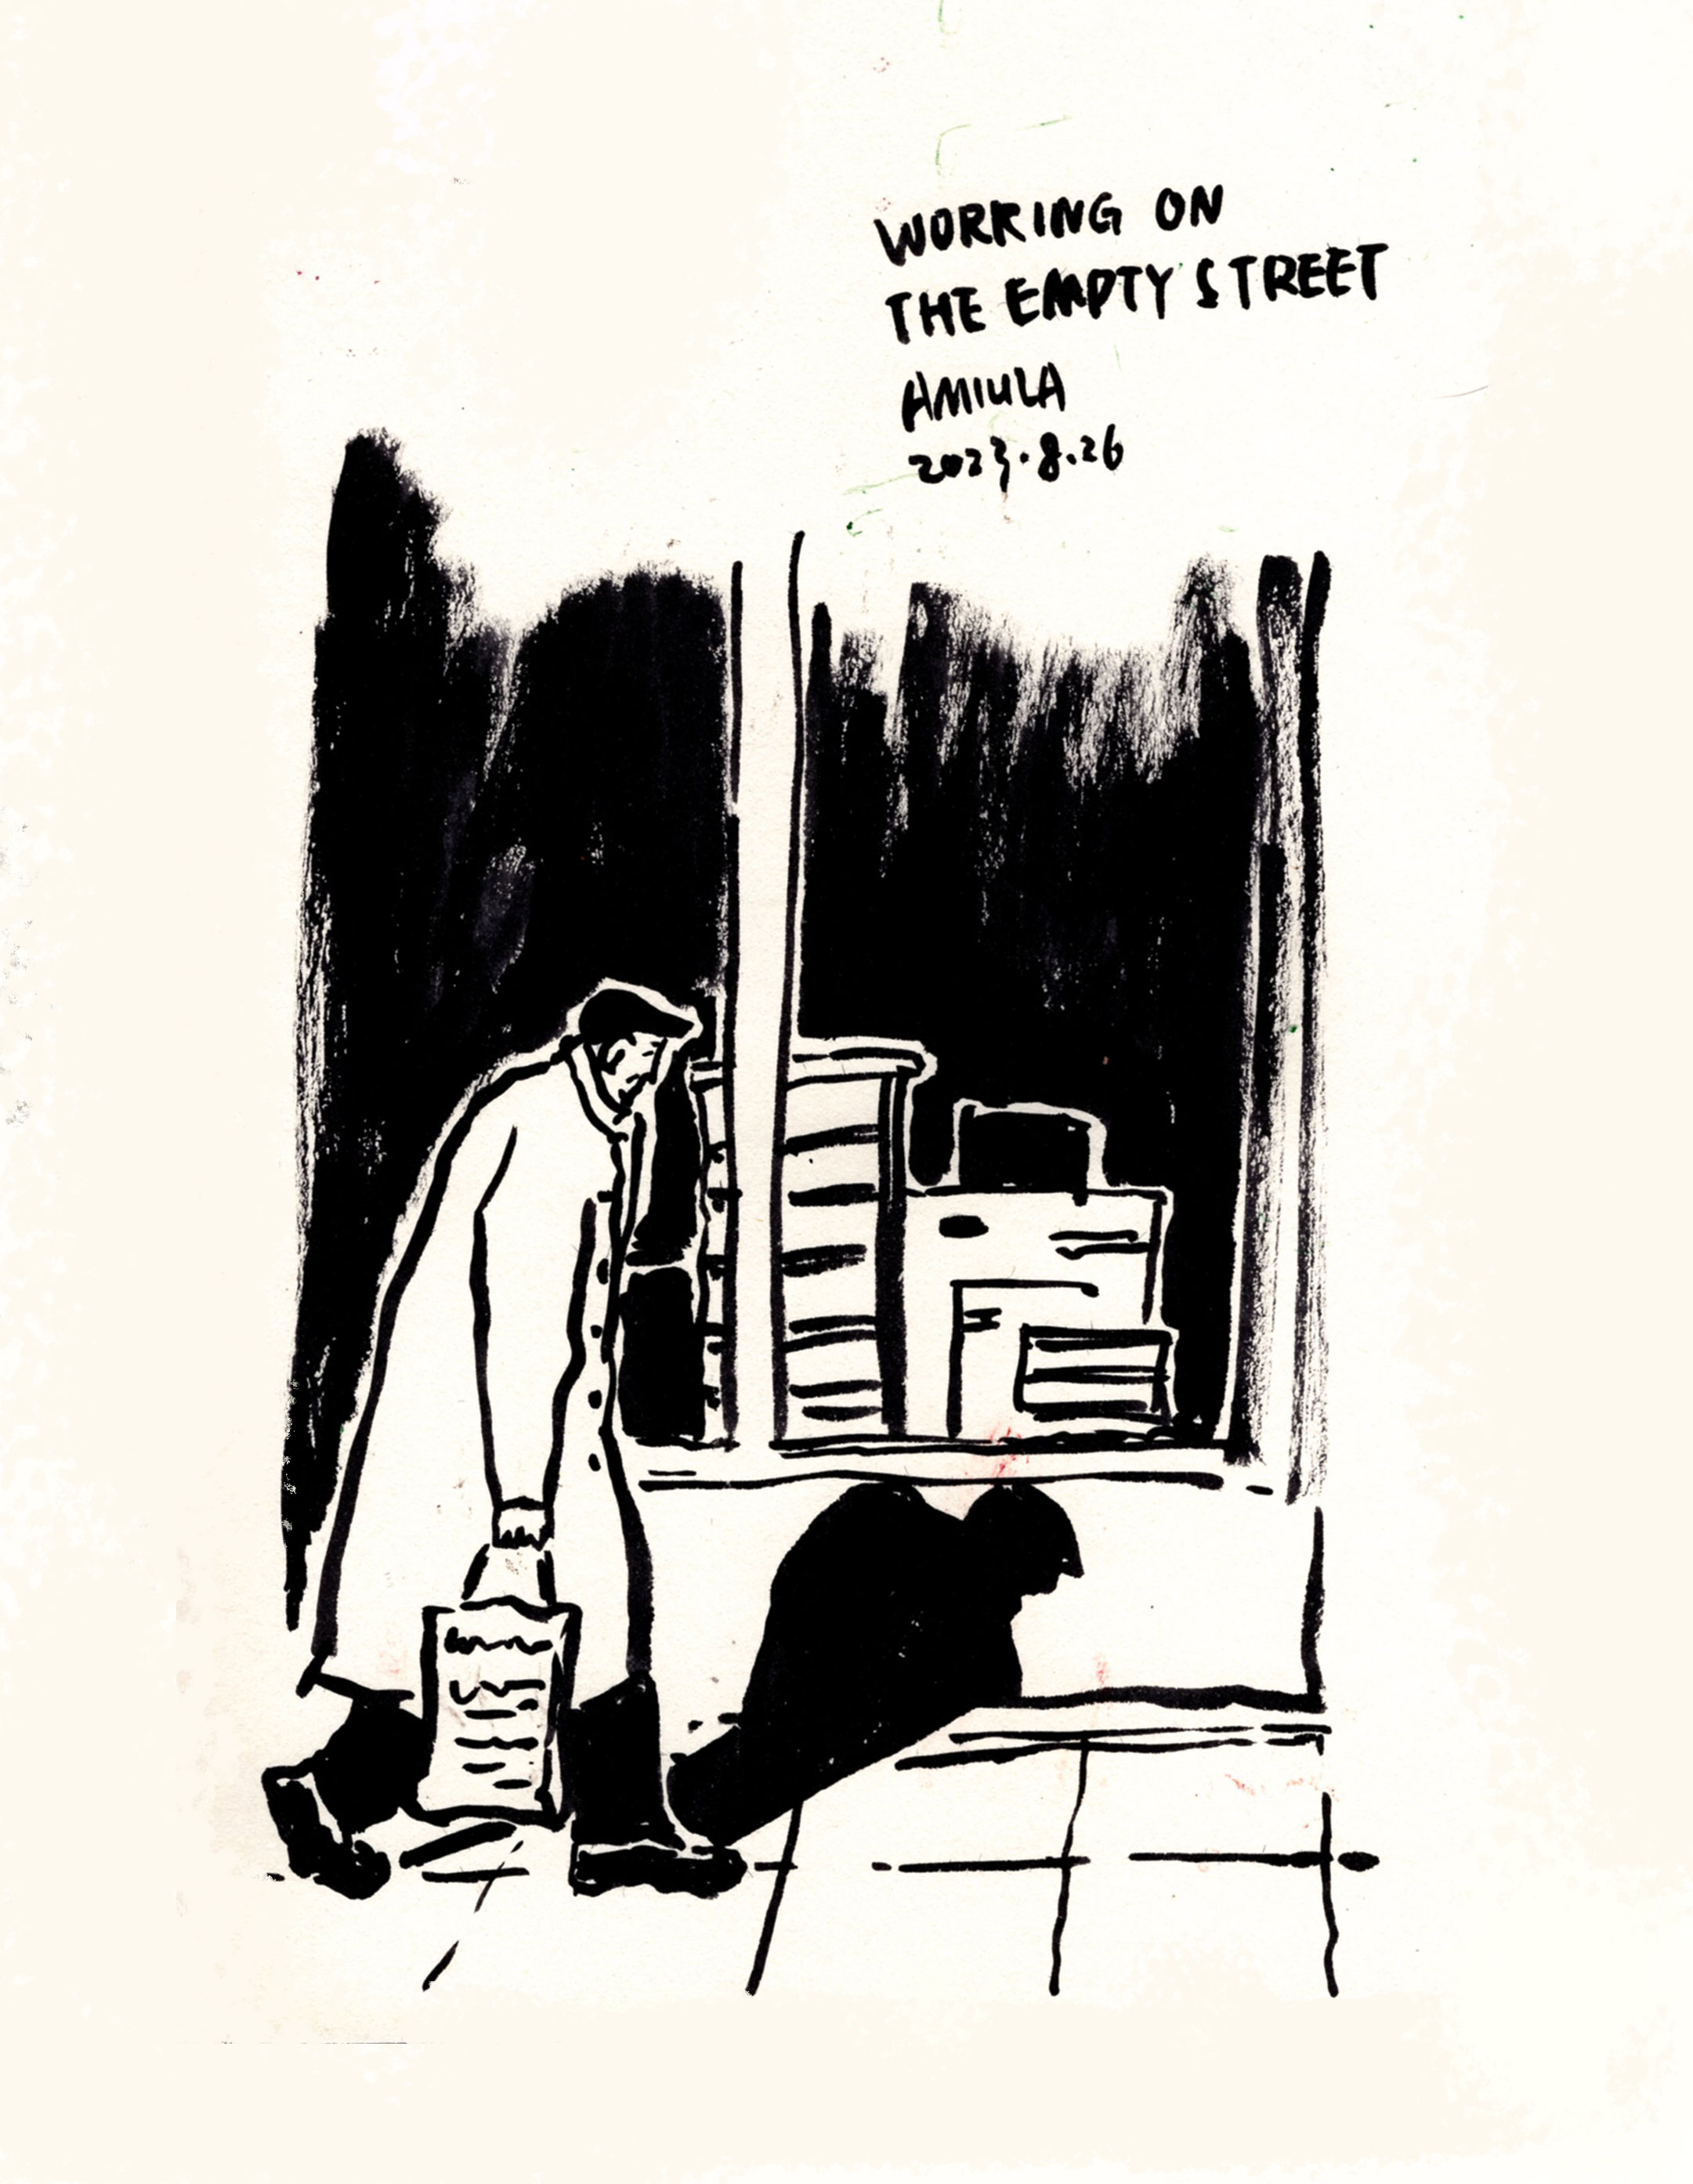 WORKING ON
THE EMPTY STREET
AMIULA
2023.8.26